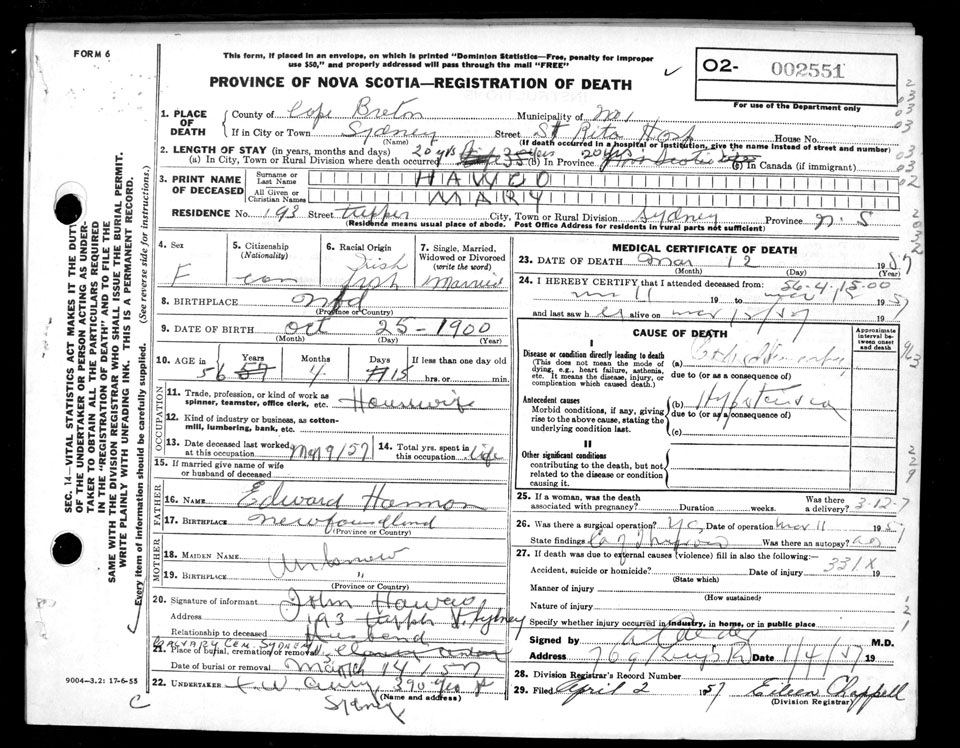 FORM 6
This form, if placed in an envelope, on which is printed "Dominion Statistics—Free, penalty for improper
use $50," and properly addressed will pass through the mail "FREE"
PROVINCE OF NOVA SCOTIA—REGISTRATION OF DEATH
O2- 002551
For use of the Department only
1. PLACE OF DEATH
County of Cape Breton Municipality of
If in City or Town Sydney Street St Rita Hosp House No.
(Name) (If death occurred in a hospital or institution, give the name instead of street and number)
2. LENGTH OF STAY (in years, months and days) 20 yrs 20 yrs
(a) In City, Town or Rural Division where death occurred (b) In Province Nova Scotia (c) In Canada (if immigrant)
3. PRINT NAME OF DECEASED
Surname or Last Name HAWCO
All Given or Christian Names MARY
RESIDENCE No. 193 Street Tupper City, Town or Rural Division Sydney Province N.S
(Residence means usual place of abode. Post Office Address for residents in rural parts not sufficient)
4. Sex F
5. Citizenship (Nationality) can
6. Racial Origin Irish
7. Single, Married, Widowed or Divorced (write the word) Married
8. BIRTHPLACE Nfd
(Province or Country)
9. DATE OF BIRTH Oct 25 - 1900
(Month) (Day) (Year)
10. AGE in Years Months Days If less than one day old
56 4 15 hrs. or min.
OCCUPATION
11. Trade, profession, or kind of work as spinner, teamster, office clerk, etc. Housewife
12. Kind of industry or business, as cotton-mill, lumbering, bank, etc.
13. Date deceased last worked at this occupation Mar 9/57
14. Total yrs. spent in this occupation Life
15. If married give name of wife or husband of deceased
FATHER
16. NAME Edward Hannon
17. BIRTHPLACE Newfoundland
(Province or Country)
MOTHER
18. MAIDEN NAME Unknown
19. BIRTHPLACE "
(Province or Country)
20. Signature of informant John Hawco
Address 193 Tupper St. Sydney
Relationship to deceased Husband
CALVARY CEM. SYDNEY
21. Place of burial, cremation or removal
Date of burial or removal March 14, 57
22. UNDERTAKER T. W. Curry 390 Geo St
(Name and address)
Sydney
9004—3.2: 17-6-55
C
MEDICAL CERTIFICATE OF DEATH
23. DATE OF DEATH Mar 12 1957
(Month) (Day) (Year)
24. I HEREBY CERTIFY that I attended deceased from: 56-4-15-00
Mar 11 19 to Mar 12 1957
and last saw her alive on Mar 12/57
CAUSE OF DEATH
Approximate interval between onset and death
I
Disease or condition directly leading to death
(This does not mean the mode of dying, e.g., heart failure, asthenia, etc. It means the disease, injury, or complication which caused death.)
(a)
due to (or as a consequence of)
Antecedent causes
Morbid conditions, if any, giving rise to the above cause, stating the underlying condition last.
(b) Hypertension
due to (or as a consequence of)
(c)
II
Other significant conditions
contributing to the death, but not related to the disease or condition causing it.
25. If a woman, was the death associated with pregnancy? Duration weeks. Was there a delivery?
3-12-7
26. Was there a surgical operation? Date of operation Mar 11 1957
State findings Was there an autopsy?
27. If death was due to external causes (violence) fill in also the following:—
331X
Accident, suicide or homicide? Date of injury 19
(State which)
Manner of injury
(How sustained)
Nature of injury
Specify whether injury occurred in industry, in home, or in public place
Signed by M.D.
Address 769 Kings Rd Date 1/4/57 19
28. Division Registrar's Record Number
29. Filed April 2 1957 Eileen Chappell
(Division Registrar)
SEC. 14—VITAL STATISTICS ACT MAKES IT THE DUTY
OF THE UNDERTAKER OR PERSON ACTING AS UNDER-
TAKER TO OBTAIN ALL THE PARTICULARS REQUIRED
IN THE "REGISTRATION OF DEATH" AND TO FILE THE
SAME WITH THE DIVISION REGISTRAR WHO SHALL ISSUE THE BURIAL PERMIT.
WRITE PLAINLY WITH UNFADING INK. THIS IS A PERMANENT RECORD.
Every item of information should be carefully supplied. (See reverse side for instructions.)